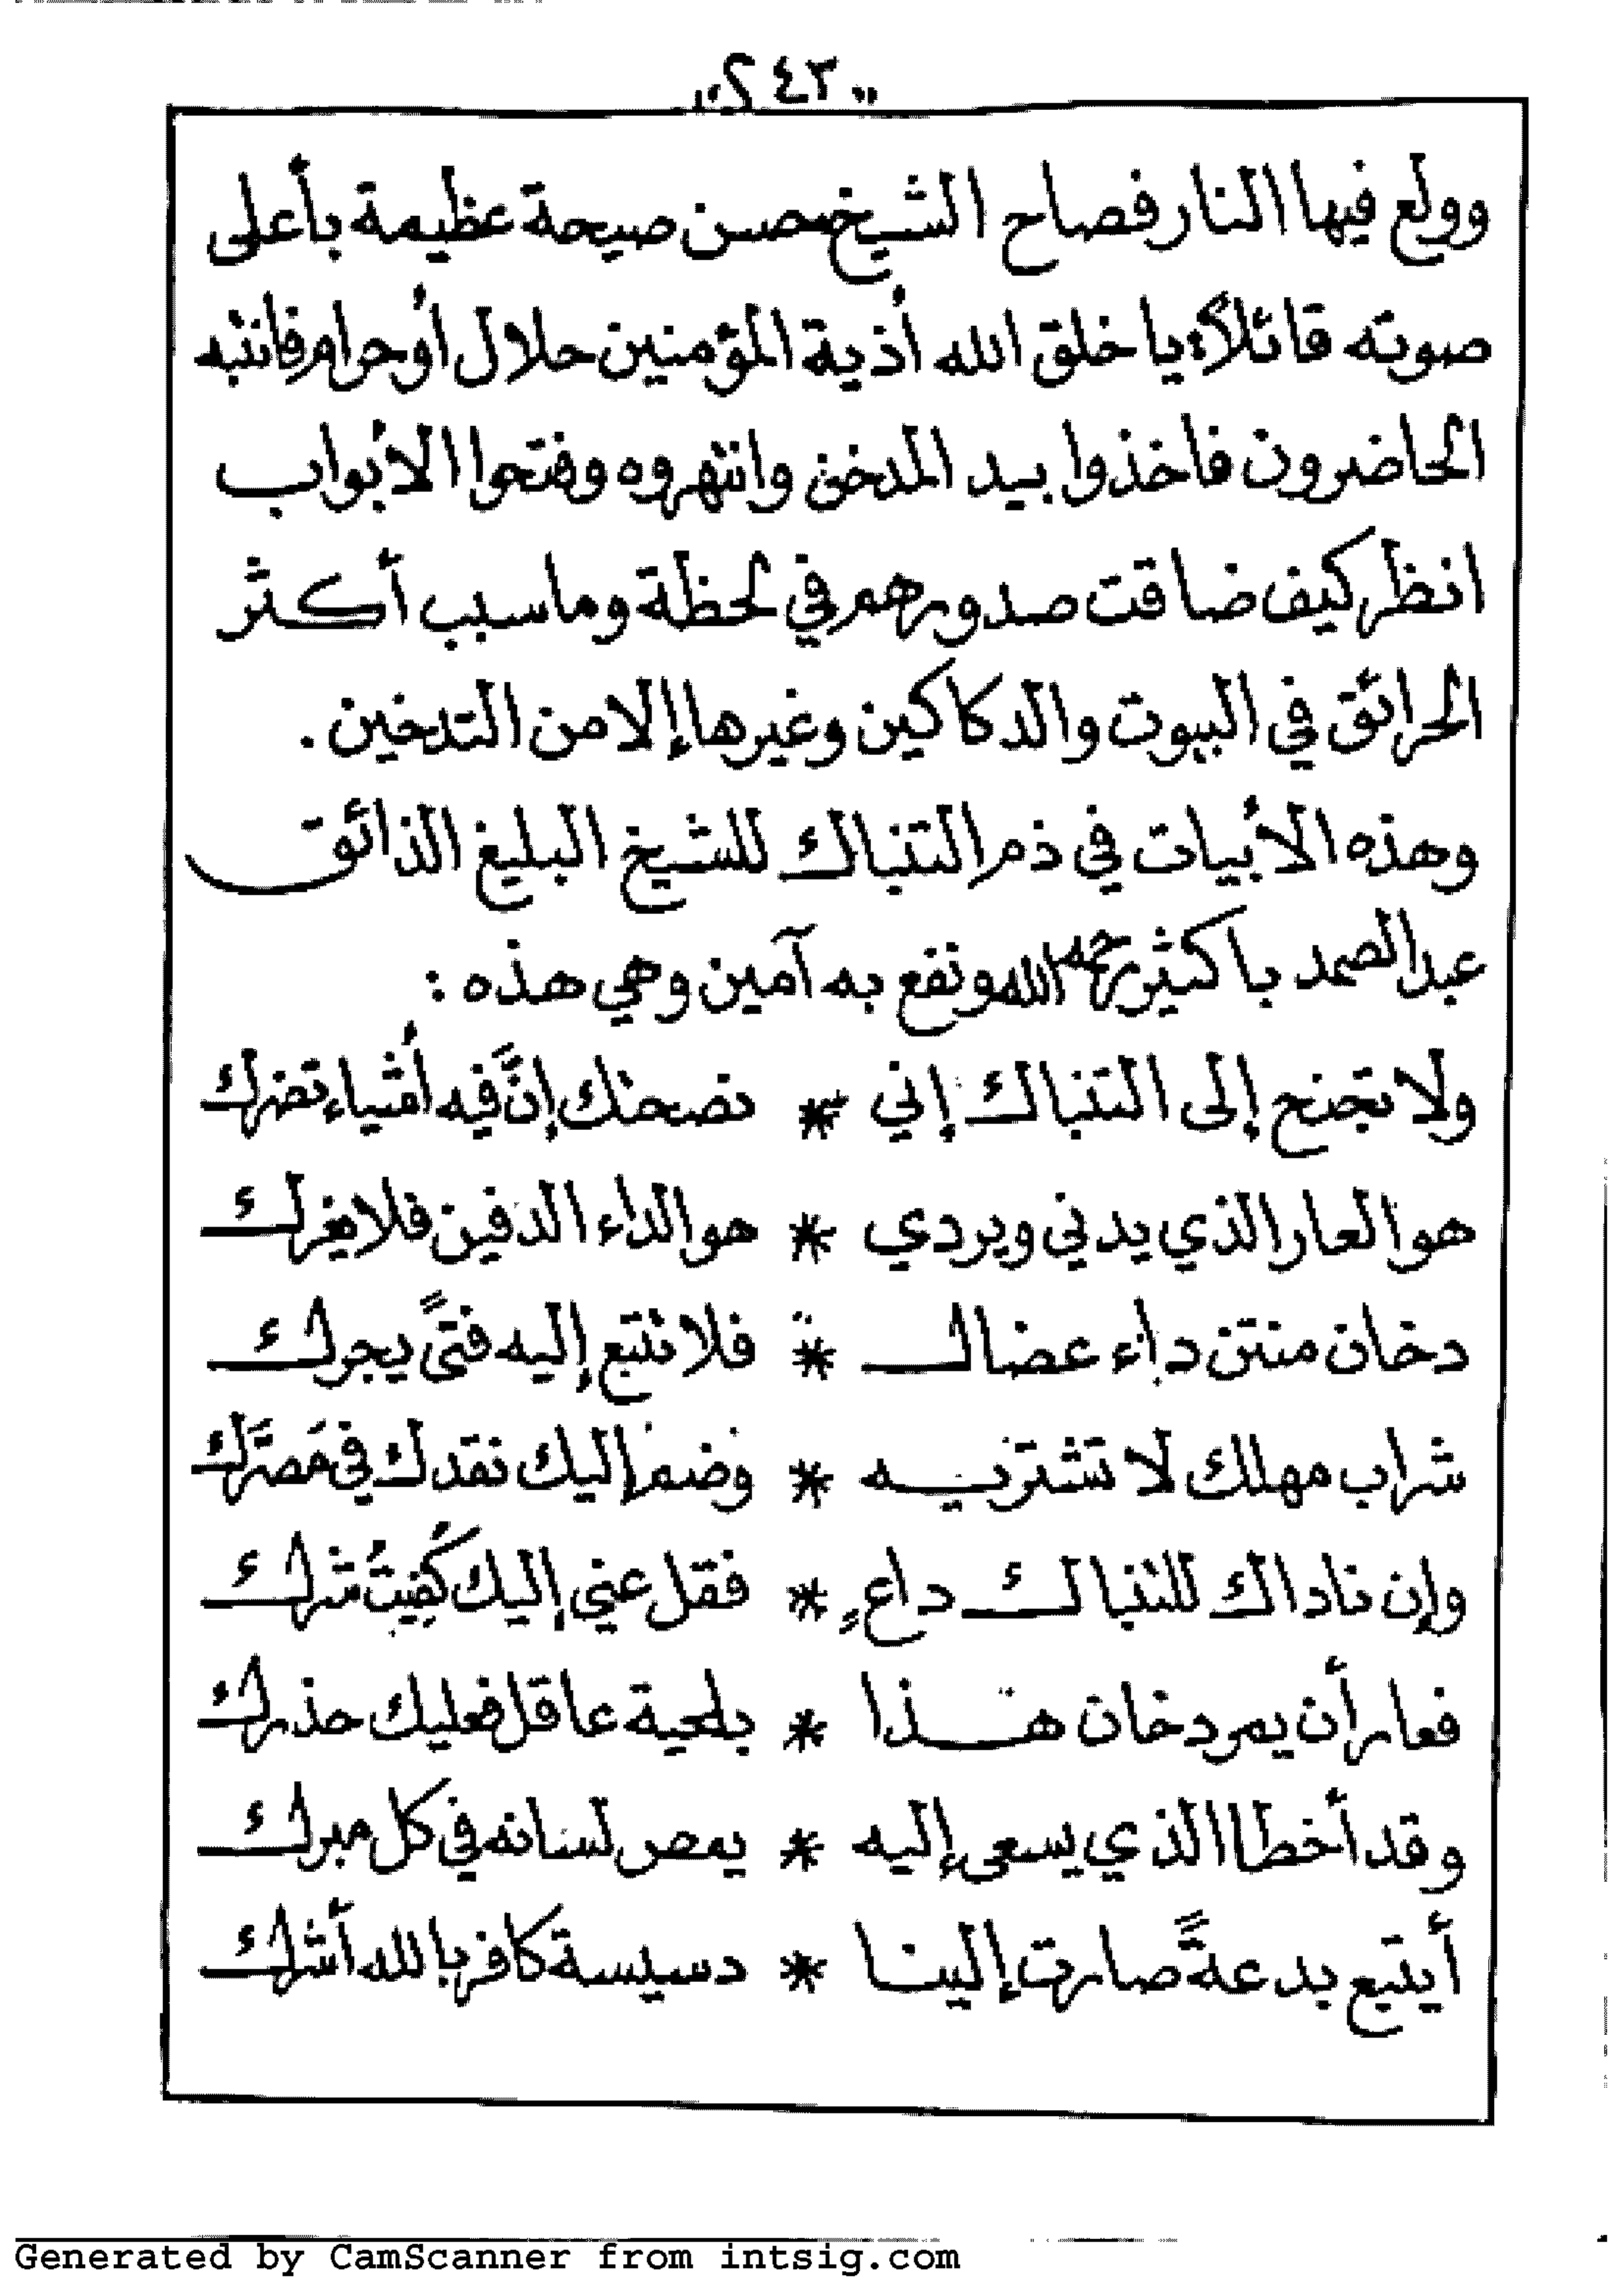 ٤٣
وولع فيها النار فصاح الشيخ محسن صيحة عظيمة بأعلى
صوته قائلاً: يا خلق الله أذية المؤمنين حلال أو حرام فانتبه
الحاضرون فاخذوا بيد المدخن وانتهروه وفتحوا الأبواب
انظر كيف ضاقت صدورهم في لحظة وما سبب أكثر
الحرائق في البيوت والدكاكين وغيرها إلا من التدخين .
وهذه الأبيات في ذم التنباك للشيخ البليغ الذائق
عبد الصمد باكثير رحمه الله ونفع به آمين وهي هذه :
ولا تجنح إلى التنباك إني * نصحتك إنَّ فيه أشياء تضرك
هو العار الذي يدني ويردي * هو الداء الدفين فلا يغرك
دخان منتن داء عضال * فلا تتبع إليه فتىً يجرك
شراب مهلك لا تشتريه * وضم إليك نقدك في مَصَرَّك
وإن ناداك للتنباك داعٍ * فقل عني إليك كُفِيتُ شرك
فعار أن يمر دخان هذا * بلحية عاقل فعليك حذرك
وقد أخطا الذي يسعى إليه * يمص لسانه في كل مبرك
أيتبع بدعةً صارت إلينا * دسيسة كافر بالله أشرك
Generated by CamScanner from intsig.com